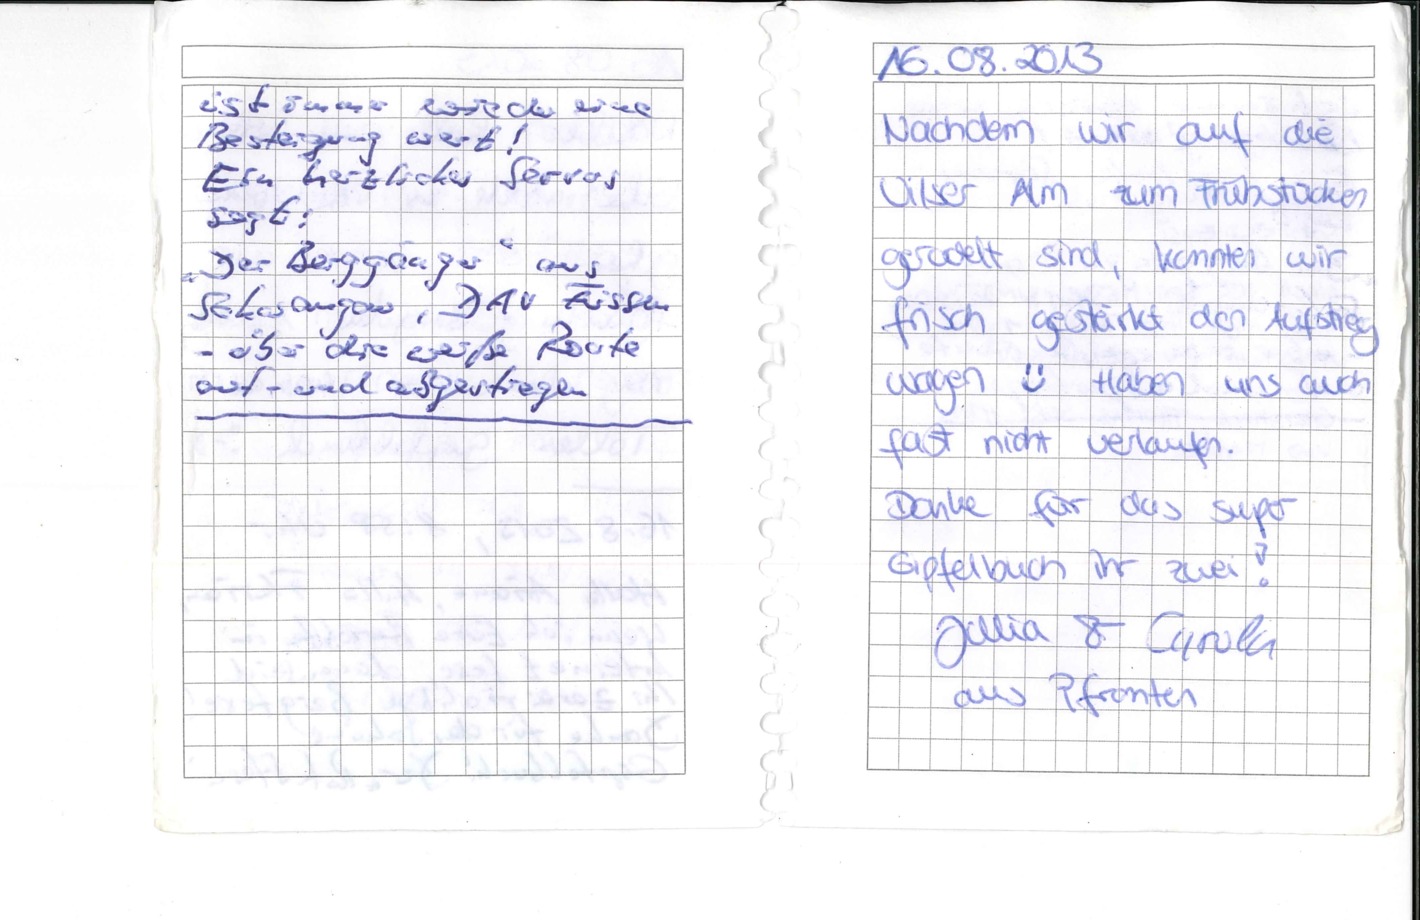 ist immer wieder eine
Besteigung wert!
Ein herzliches Servus
sagt:
„Der Berggänger“ aus
Schwangau, DAV Füssen
- über die weiße Route
auf- und abgestiegen
16.08.2013
Nachdem wir auf die
Vilser Alm zum Frühstücken
geradelt sind, konnten wir
frisch gestärkt den Aufstieg
wagen ü Haben uns auch
fast nicht verlaufen.
Danke für das super
Gipfelbuch ihr zwei!
Julia & Carola
aus Pfronten